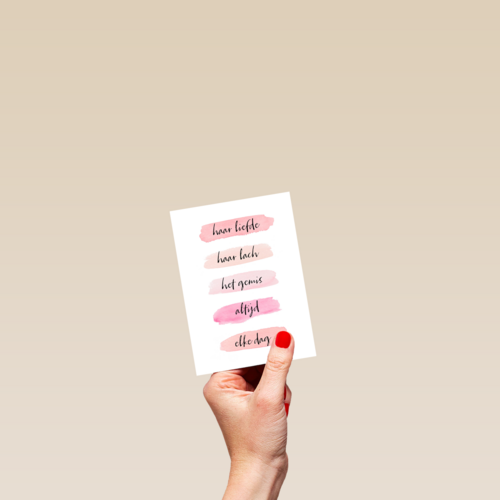 haar liefde
haar lach
het gemis
altijd
elke dag